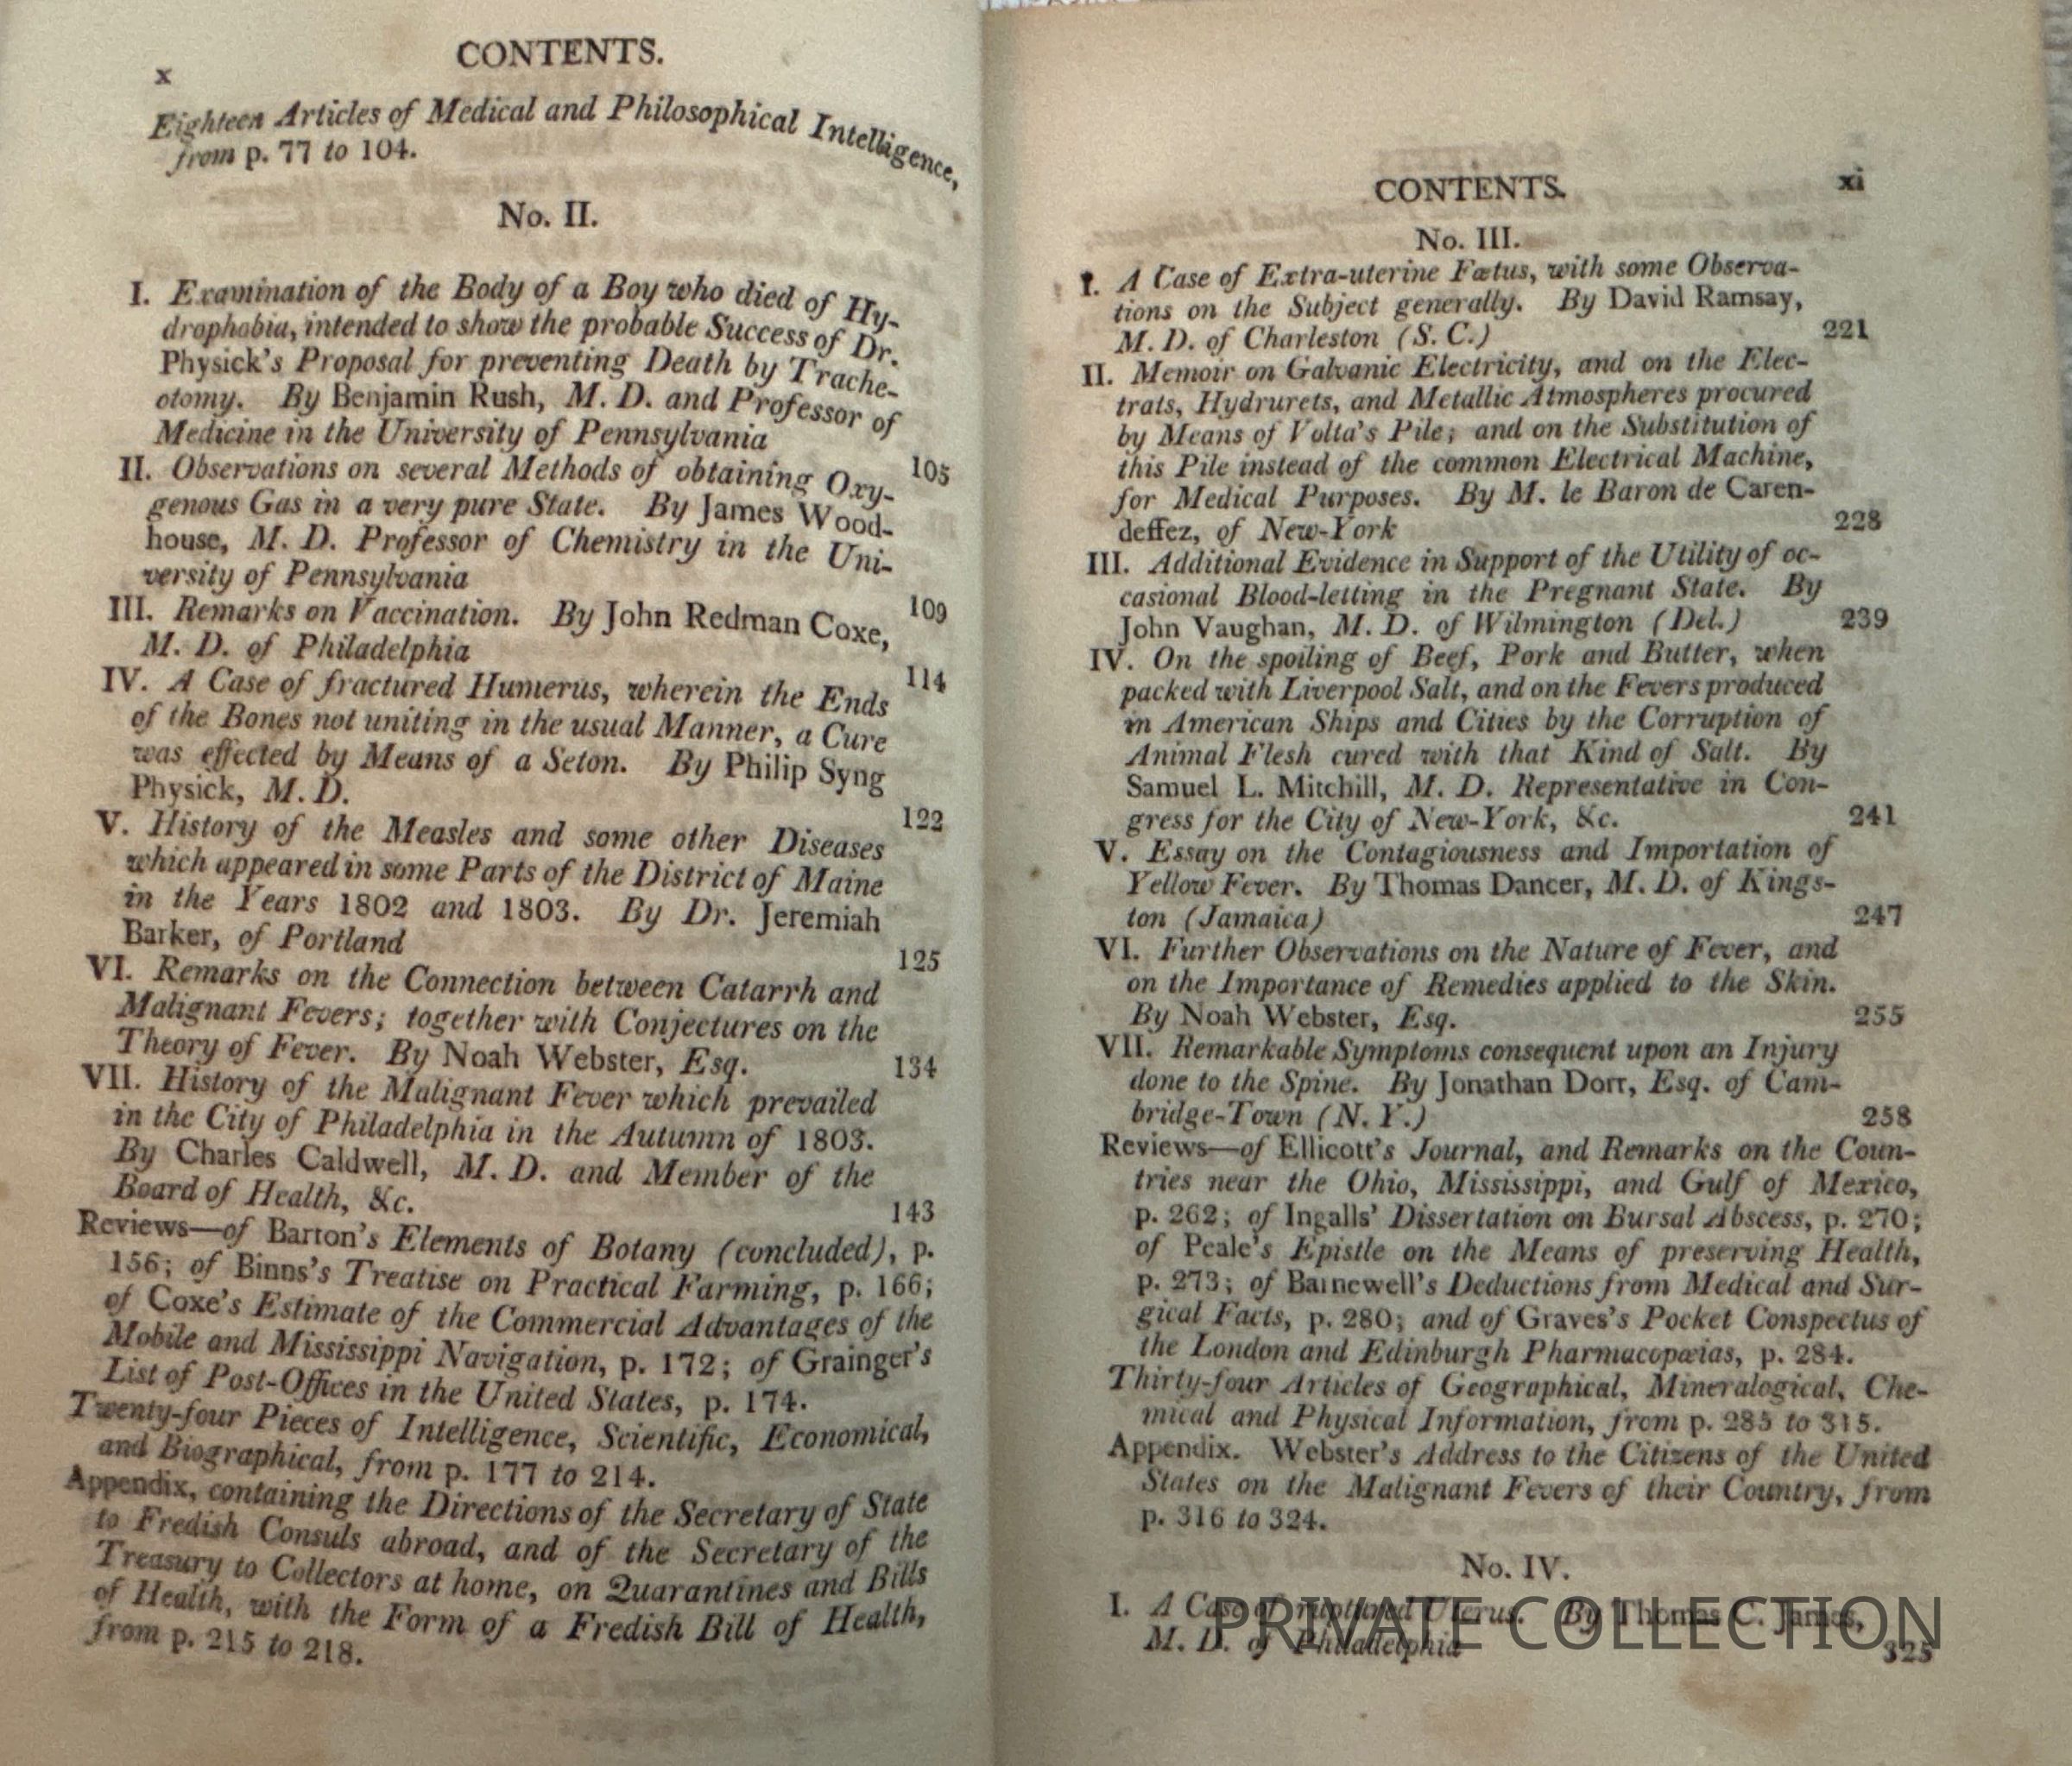 x
CONTENTS.
Eighteen Articles of Medical and Philosophical Intelligence,
from p. 77 to 104.
No. II.
I. Examination of the Body of a Boy who died of Hy-
drophobia, intended to show the probable Success of Dr.
Physick's Proposal for preventing Death by Trache-
otomy. By Benjamin Rush, M. D. and Professor of
Medicine in the University of Pennsylvania 105
II. Observations on several Methods of obtaining Oxy-
genous Gas in a very pure State. By James Wood-
house, M. D. Professor of Chemistry in the Uni-
versity of Pennsylvania 109
III. Remarks on Vaccination. By John Redman Coxe,
M. D. of Philadelphia 114
IV. A Case of fractured Humerus, wherein the Ends
of the Bones not uniting in the usual Manner, a Cure
was effected by Means of a Seton. By Philip Syng
Physick, M. D. 122
V. History of the Measles and some other Diseases
which appeared in some Parts of the District of Maine
in the Years 1802 and 1803. By Dr. Jeremiah
Barker, of Portland 125
VI. Remarks on the Connection between Catarrh and
Malignant Fevers; together with Conjectures on the
Theory of Fever. By Noah Webster, Esq. 134
VII. History of the Malignant Fever which prevailed
in the City of Philadelphia in the Autumn of 1803.
By Charles Caldwell, M. D. and Member of the
Board of Health, &c. 143
Reviews—of Barton's Elements of Botany (concluded), p.
156; of Binns's Treatise on Practical Farming, p. 166;
of Coxe's Estimate of the Commercial Advantages of the
Mobile and Mississippi Navigation, p. 172; of Grainger's
List of Post-Offices in the United States, p. 174.
Twenty-four Pieces of Intelligence, Scientific, Economical,
and Biographical, from p. 177 to 214.
Appendix, containing the Directions of the Secretary of State
to Fredish Consuls abroad, and of the Secretary of the
Treasury to Collectors at home, on Quarantines and Bills
of Health, with the Form of a Fredish Bill of Health,
from p. 215 to 218.
CONTENTS. xi
No. III.
I. A Case of Extra-uterine Fœtus, with some Observa-
tions on the Subject generally. By David Ramsay,
M. D. of Charleston (S. C.) 221
II. Memoir on Galvanic Electricity, and on the Elec-
trats, Hydrurets, and Metallic Atmospheres procured
by Means of Volta's Pile; and on the Substitution of
this Pile instead of the common Electrical Machine,
for Medical Purposes. By M. le Baron de Caren-
deffez, of New-York 228
III. Additional Evidence in Support of the Utility of oc-
casional Blood-letting in the Pregnant State. By
John Vaughan, M. D. of Wilmington (Del.) 239
IV. On the spoiling of Beef, Pork and Butter, when
packed with Liverpool Salt, and on the Fevers produced
in American Ships and Cities by the Corruption of
Animal Flesh cured with that Kind of Salt. By
Samuel L. Mitchill, M. D. Representative in Con-
gress for the City of New-York, &c. 241
V. Essay on the Contagiousness and Importation of
Yellow Fever. By Thomas Dancer, M. D. of Kings-
ton (Jamaica) 247
VI. Further Observations on the Nature of Fever, and
on the Importance of Remedies applied to the Skin.
By Noah Webster, Esq. 255
VII. Remarkable Symptoms consequent upon an Injury
done to the Spine. By Jonathan Dorr, Esq. of Cam-
bridge-Town (N. Y.) 258
Reviews—of Ellicott's Journal, and Remarks on the Coun-
tries near the Ohio, Mississippi, and Gulf of Mexico,
p. 262; of Ingalls' Dissertation on Bursal Abscess, p. 270;
of Peale's Epistle on the Means of preserving Health,
p. 273; of Barnewell's Deductions from Medical and Sur-
gical Facts, p. 280; and of Graves's Pocket Conspectus of
the London and Edinburgh Pharmacopœias, p. 284.
Thirty-four Articles of Geographical, Mineralogical, Che-
mical and Physical Information, from p. 285 to 315.
Appendix. Webster's Address to the Citizens of the United
States on the Malignant Fevers of their Country, from
p. 316 to 324.
No. IV.
I. A Case of ruptured Uterus. By Thomas C. James,
M. D. of Philadelphia 325
PRIVATE COLLECTION